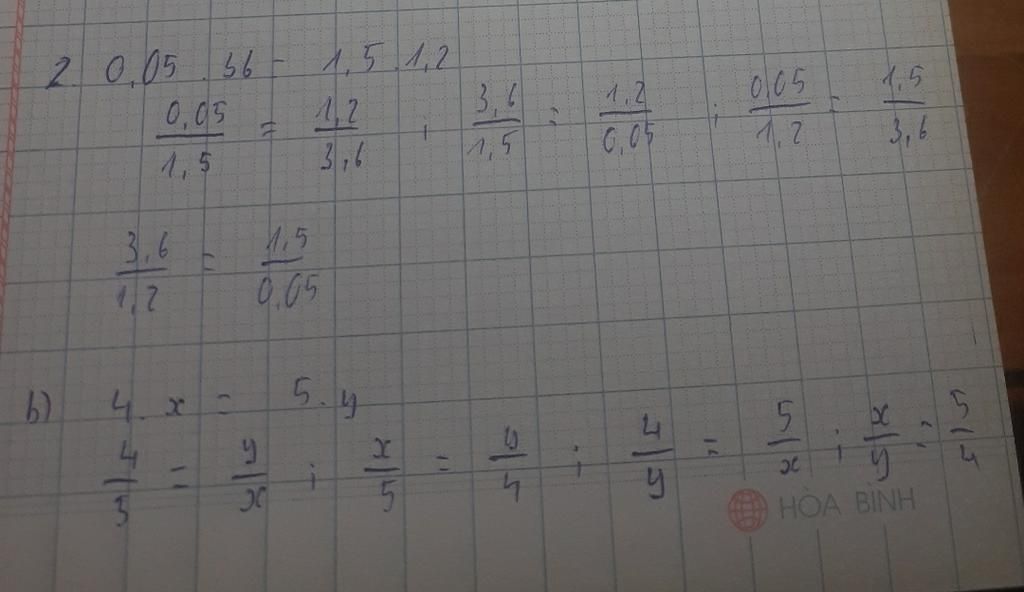 2. 0,05 . 36 = 1,5 . 1,2
0,05/1,5 = 1,2/3,6 ; 3,6/1,5 = 1,2/0,05 ; 0,05/1,2 = 1,5/3,6
3,6/1,2 = 1,5/0,05
b) 4 . x = 5 . y
4/5 = y/x ; x/5 = y/4 ; 4/y = 5/x ; x/y = 5/4
HÒA BÌNH